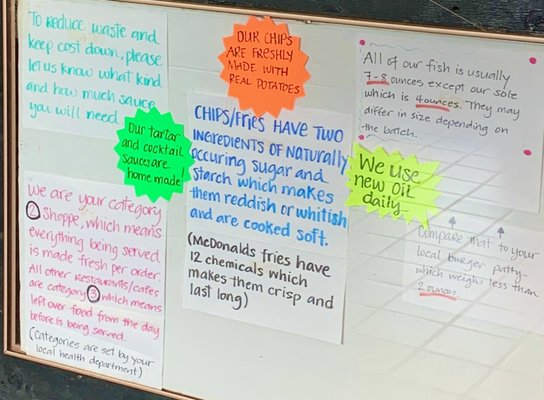 To reduce waste and
keep cost down, please
let us know what kind
and how much sauce
you will need.
OUR CHIPS
ARE FRESHLY
MADE WITH
REAL POTATOES
Our tartar
and cocktail
sauces are
home made!
We are your category
2 Shoppe, which means
everything being served
is made fresh per order.
All other restaurants/cafes
are category 3 which means
left over food from the day
before is being served.
(Categories are set by your
local health department)
CHIPS/FRIES HAVE TWO
INGREDIENTS OF NATURALLY
occuring sugar and
starch which makes
them reddish or whitish
and are cooked soft.
(McDonalds fries have
12 chemicals which
makes them crisp and
last long)
All of our fish is usually
7-8 ounces except our sole
which is 4 ounces. They may
differ in size depending on
the batch.
We use
new oil
daily
Compare that to your
local burger patty
which weighs less than
2 ounces